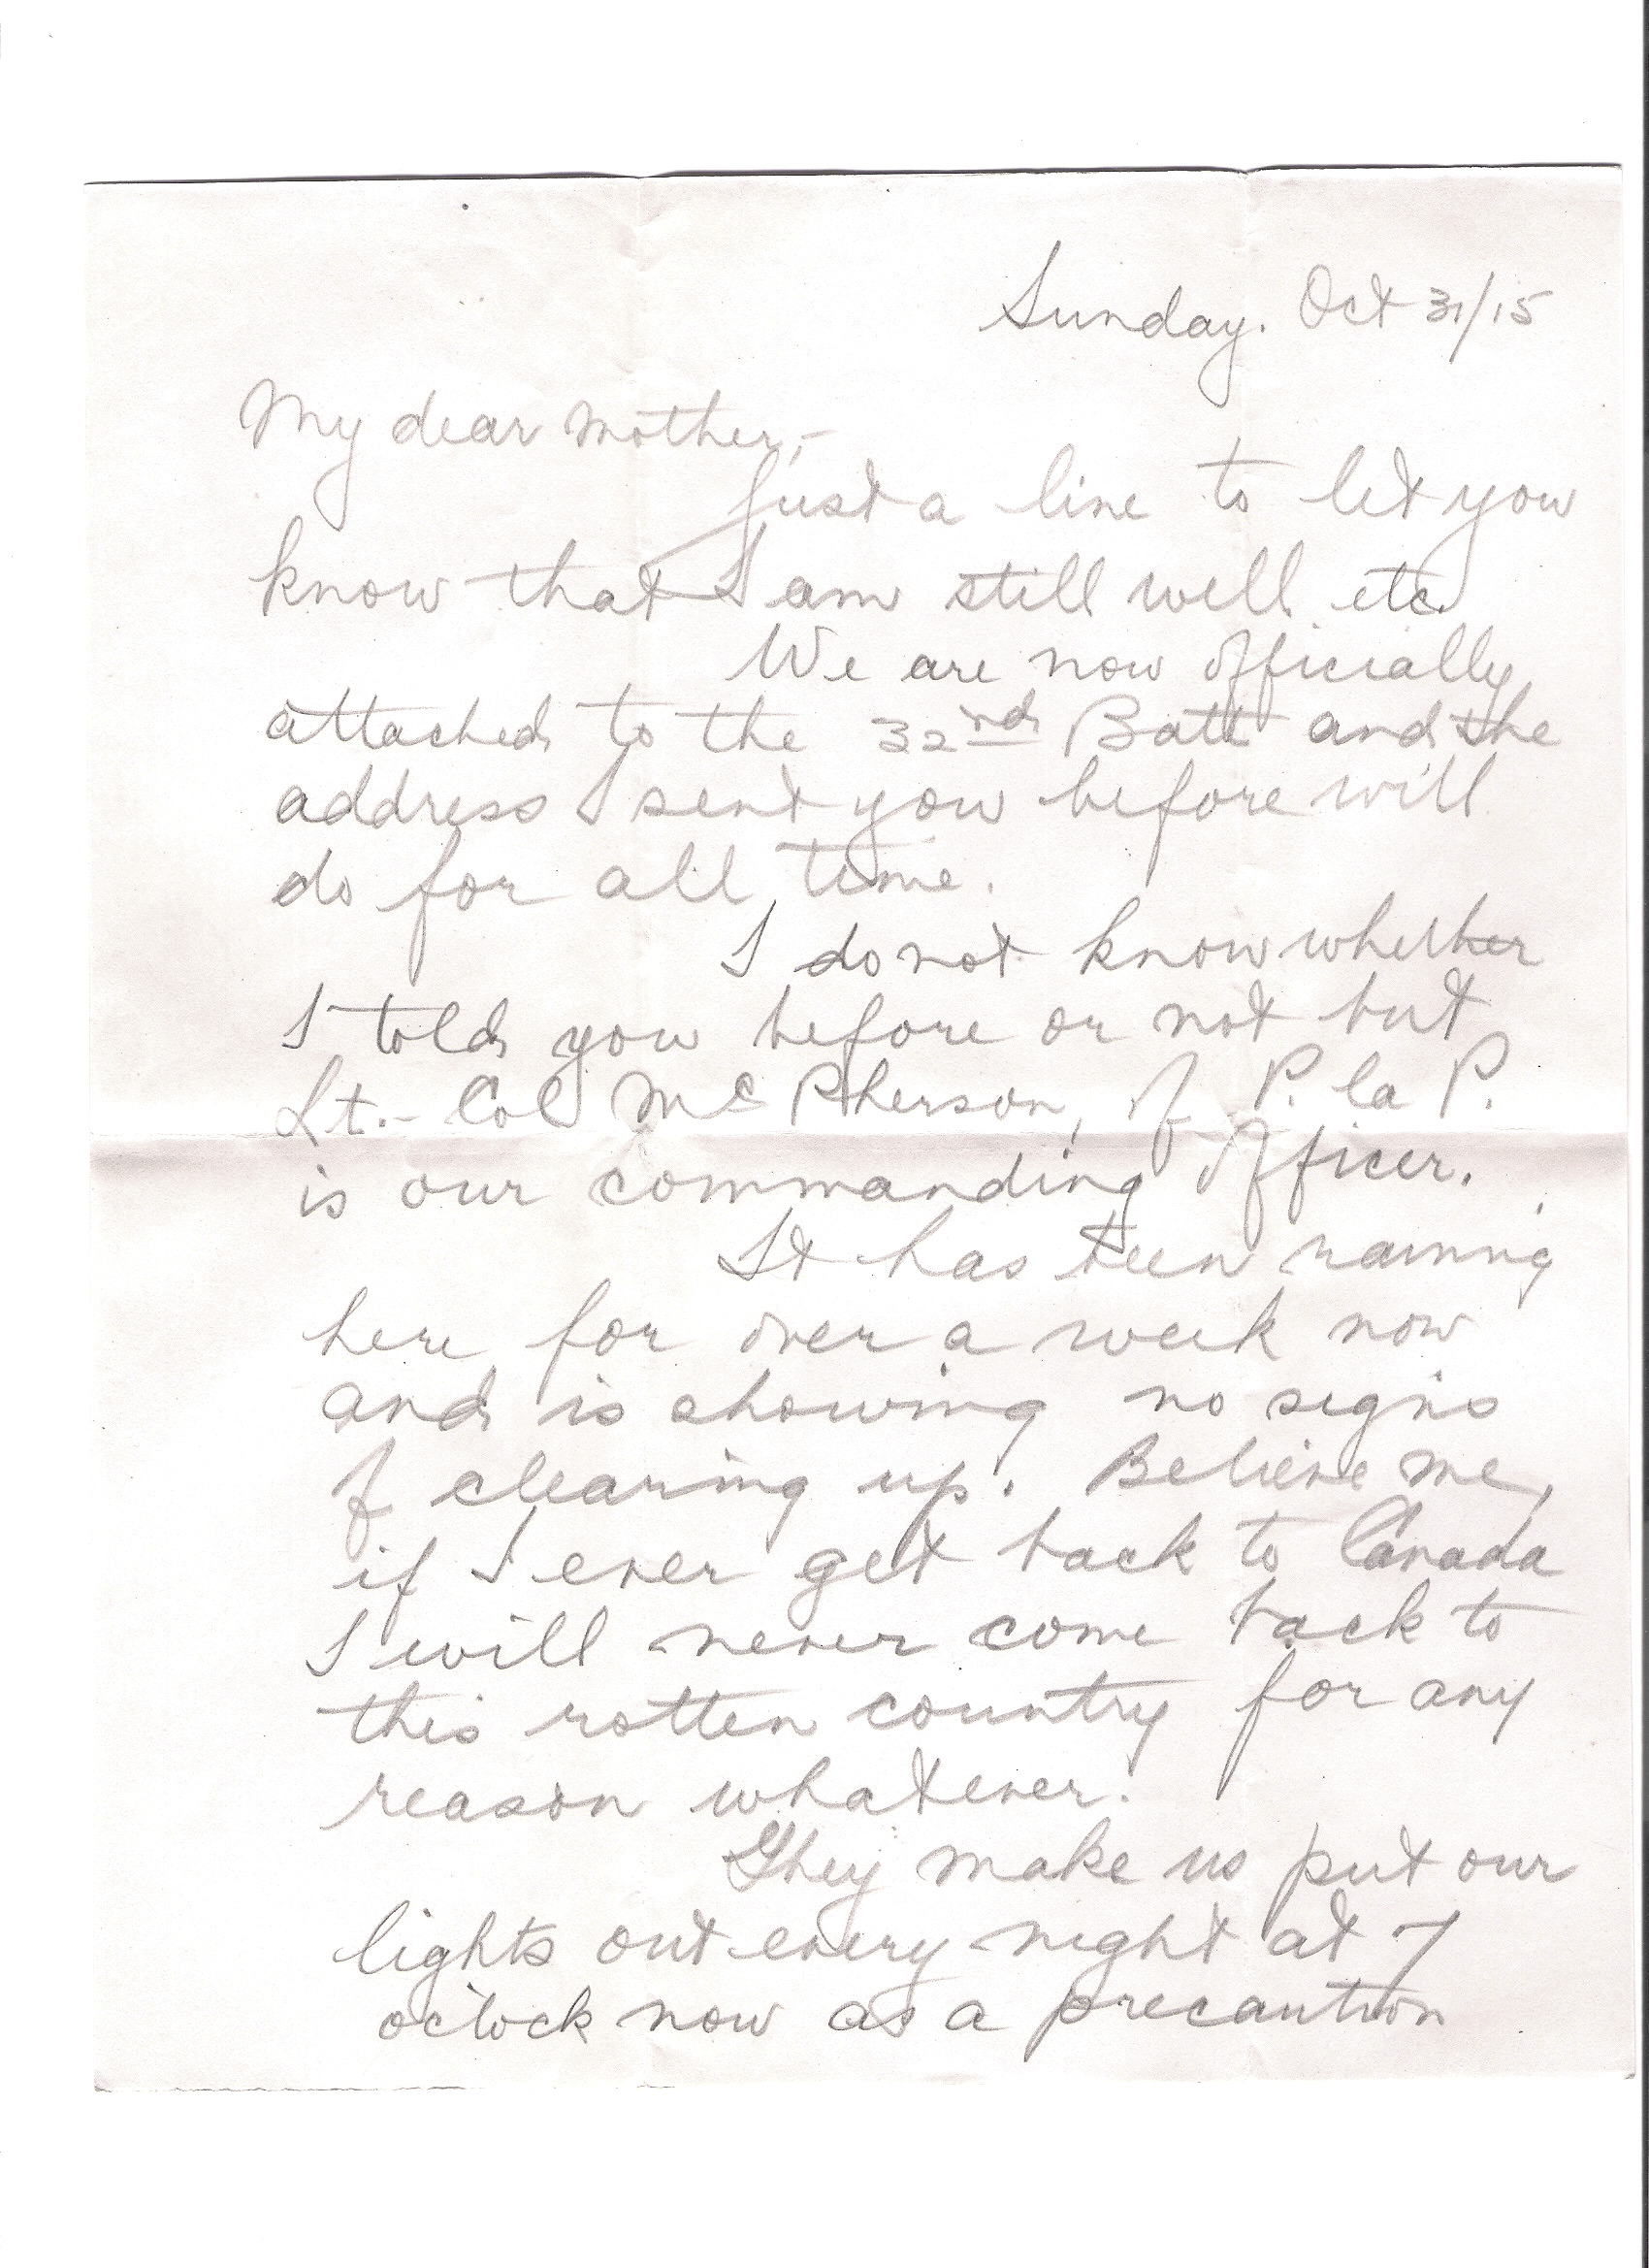 Sunday. Oct 31/15
My dear Mother,-
Just a line to let you
know that I am still well etc.
We are now officially
attached to the 32nd Batt and the
address I sent you before will
do for all time.
I do not know whether
I told you before or not but
Lt.- Col McPherson, of P. la P.
is our commanding officer.
It has been raining
here for over a week now
and is showing no signs
of clearing up. Believe me,
if I ever get back to Canada
I will never come back to
this rotten country for any
reason whatever.
They make us put our
lights out every night at 7
o'clock now as a precaution